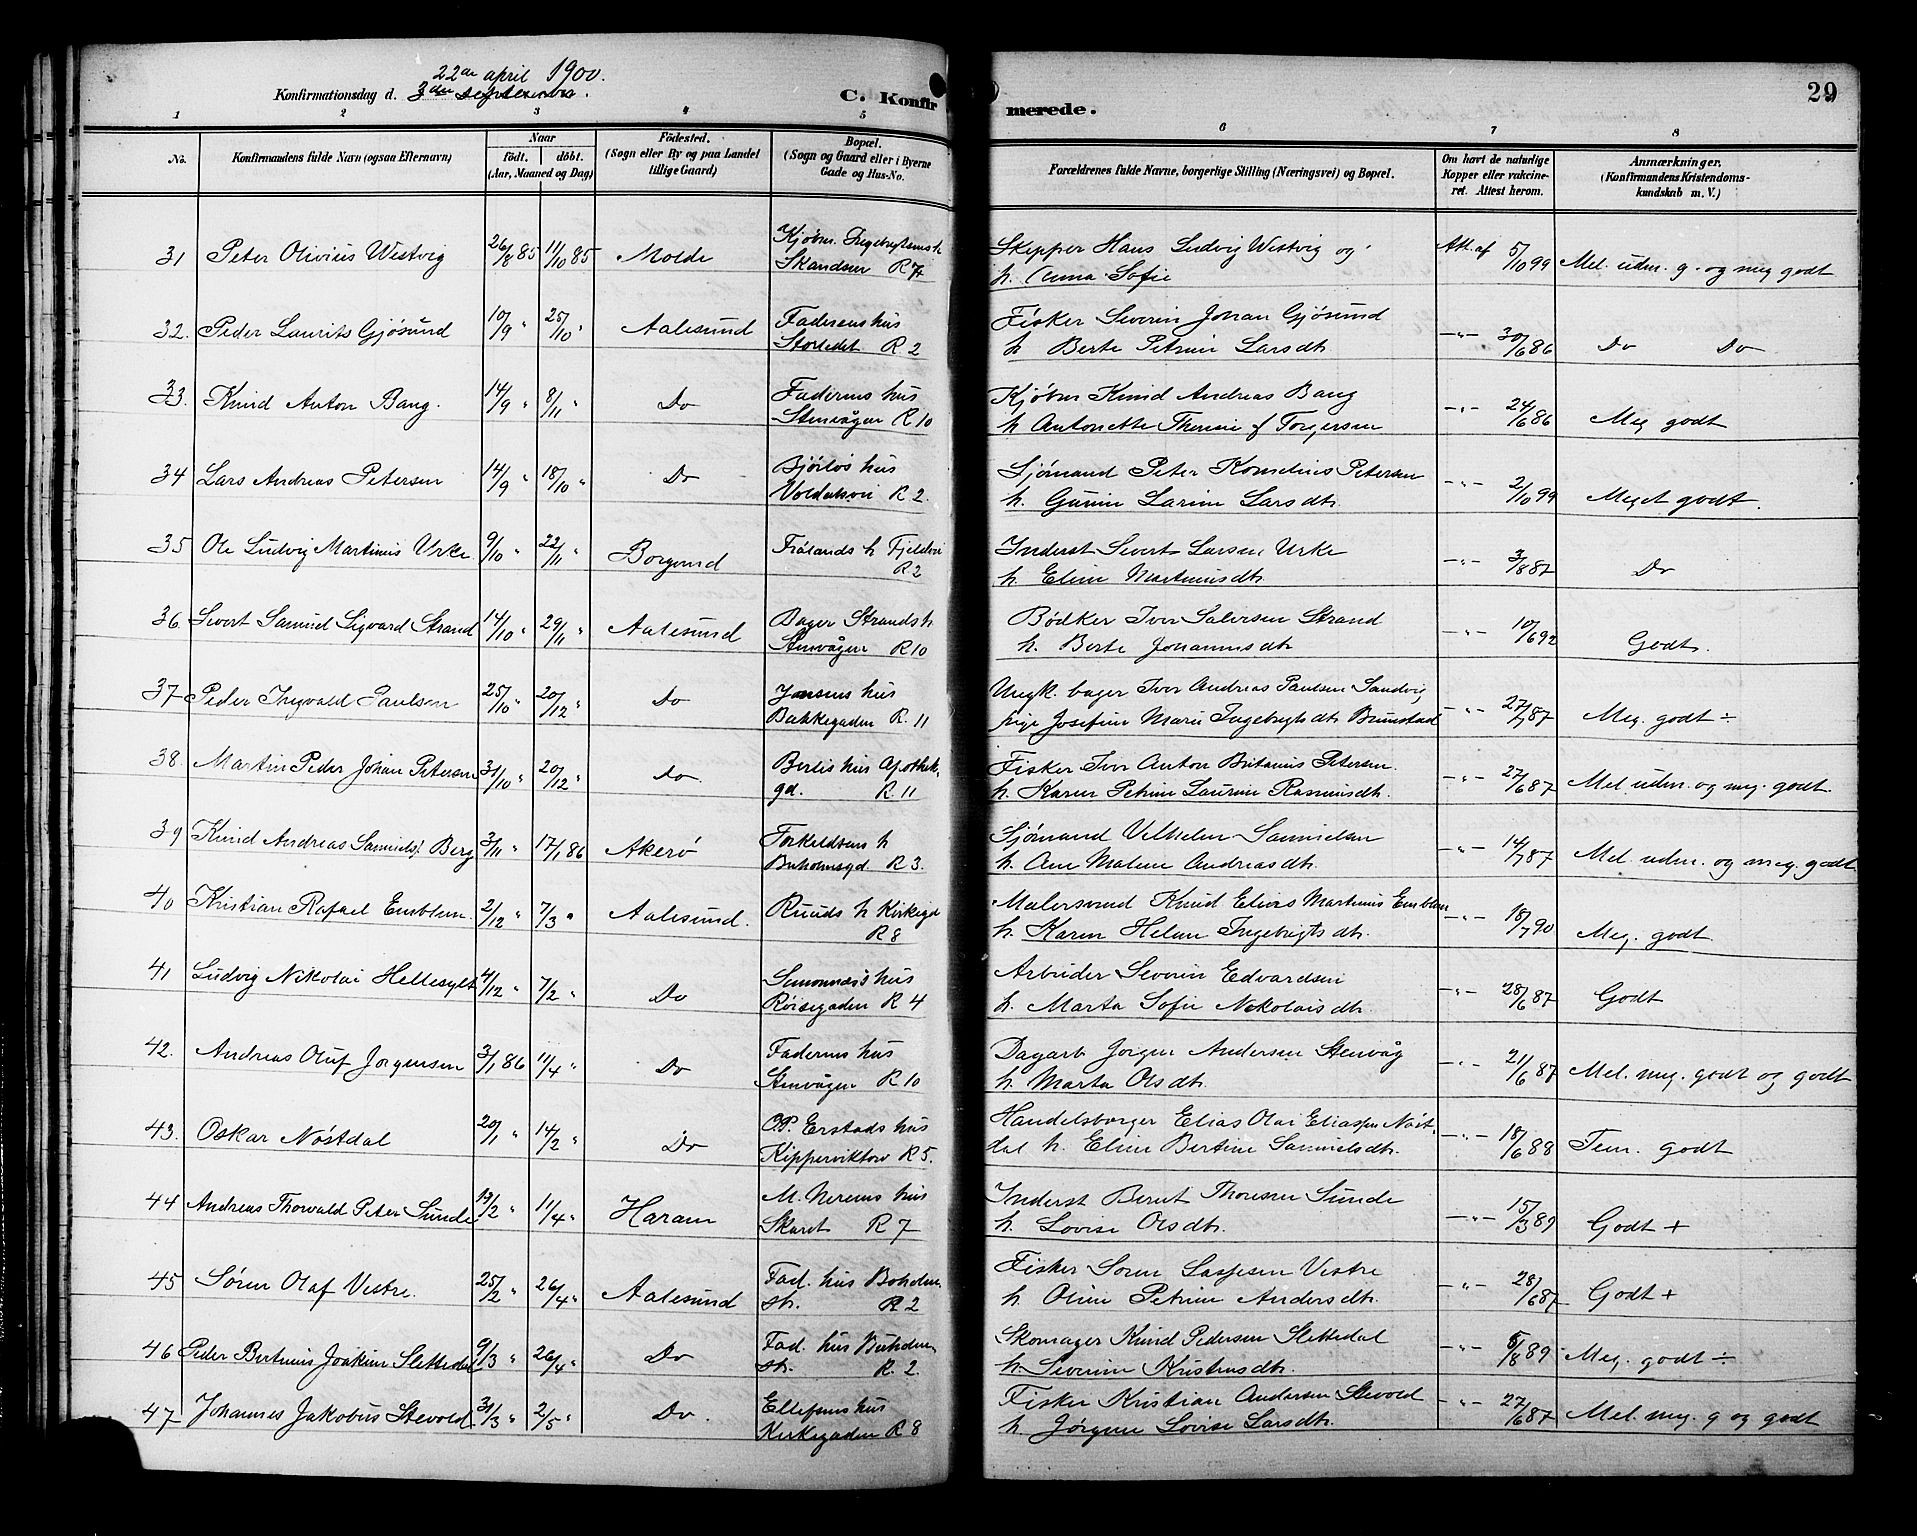 29
22de april 1900.
Konfirmationsdag d. 3die september.
C. Konfirmerede.
1 2 3 4 5 6 7 8
No. Konfirmandens fulde Navn (ogsaa Efternavn) Naar födt. döbt. (Aar, Maaned og Dag) Födested. (Sogn eller By og paa Landet tillige Gaard) Bopæl. (Sogn og Gaard eller i Byerne Gade og Hus-No. Forældrenes fulde Navne, borgerlige Stilling (Næringsvei) og Bopæl. Om havt de naturlige Kopper eller vakcineret. Attest herom. Anmærkninger. (Konfirmandens Kristendomskundskab m. V.)
31 Peter Olivius Westvig 26/8 85 11/10 85 Molde Kjøbm. Ingebrigtsens h Skandsen R 7 Skipper Hans Ludvig Westvig og h. Anna Sofie Att. af 5/10 99 Mel. udm. g. og meg godt
32. Peder Laurits Gjøsund 10/9 " 25/10 " Aalesund Faderens hus Storledet R 2 Fisker Severin Johan Gjøsund h Berte Petrine Larsdt. -"- 30/6 86 Do Do
33. Knud Anton Bang. 14/9 " 8/11 " Do Faderens hus Stenvågen R 10 Kjøbm Knud Andreas Bang h Antonette Therese f Torgersen -"- 24/6 86 Meg godt
34 Lars Andreas Petersen 14/9 " 18/10 " Do Bjørlos hus R 2. Sjømand Peter Kornelius Petersen h. Gurine Larine Larsdt. -"- 2/10 99 Meget godt.
35 Ole Ludvig Martinus Urke 9/10 " 22/11 " Borgund Frølands h R 2 Inderst Sivert Larsen Urke h. Eline Martinusdt. -"- 3/8 87 Do
36. Sivert Samuel Sigvard Strand 14/10 " 29/11 " Aalesund Bager Strands h Stenvågen R 10 Bødker Iver Salersen Strand h. Berte Johannesdt -"- 10/6 92 Godt.
37 Peder Ingvald Paulsen 25/10 " 20/12 " Do Jensens hus Bakkegaden R. 11 Ungk. bager Iver Andreas Paulsen Sandvig pige Josefine Marie Ingebrigtsdt. Brunstad -"- 27/7 87 Meg. godt ÷
38. Martin Peder Johan Petersen 31/10 " 20/12 " Do Bertis hus Apothek. gd. R. 11 Fisker Iver Anton Petersen. h. Karen Petrine Laurine Rasmusdt. -"- 27/6 87 Mel. udm. og meg. godt.
39 Knud Andreas Samuels. Berg 3/11 " 17/1 86 Akerø Torkeldsens h Buholmsgd. R 3. Sjømand Vilhelm Samuelsen h. Ane Malene Andreasdt. -"- 14/7 87 Mel. udm. og meg. godt
40 Kristian Rafael Emblem 2/12 " 7/3 " Aalesund. Ruuds h Kirkegd R 8 Malersvend Knud Elias Martinus Emblem h. Karen Helene Ingebrigtsdt. -"- 18/7 90 Meg. godt
41 Ludvig Nikolai Hellesylt 4/12 " 7/2 " Do Simonnæs's hus Røisegaden R 4 Arbeider Severin Edvardsen h. Marta Sofie Nikolaisdt. -"- 28/6 87 Godt
42. Andreas Oluf Jørgensen 3/1 86 11/4 " Do Faderens hus Stenvågen R 10 Dagarb Jørgen Andersen Stenvåg h. Marta Olsdt. -"- 21/6 87 Mel. meg. godt og godt
43. Oskar Nøstdal 20/1 " 14/2 " Do O.P. Erstads hus Kipperviktorv R 5. Handelsborger Elias Olai Eliassen Nøstdal h. Eline Bertine Samuelsdt. -"- 18/6 88 Tem. godt
44 Andreas Thorvald Peter Sunde 19/2 " 11/4 " Haram M. Nerems hus Skaret R 7 Inderst Bernt Thoresen Sunde h. Lovise Olsdt. -"- 15/3 89 Godt +
45 Søren Olaf Vestre. 25/2 " 26/4 " Aalesund Fad. hus Buholm. st. R 2 Fisker Søren Vestre h. Oline Petrine Andersdt. -"- 28/6 87 Godt +
46 Peder Bertinus Joakim Slettedal 9/3 " 26/4 " Do Fad. hus Buholm. st. R. 2. Skomager Knud Pedersen Slettedal h. Severine Kristensdt. -"- 5/8 89 Meg. godt ÷
47 Johannes Jakobus Stevold 31/3 " 2/5 " Do. Ellefsens hus Kirkegaden R 8 Fisker Kristian Andersen Stevold h. Jørgine Lovise Larsdt. -"- 27/6 87 Mel. meg. g og godt